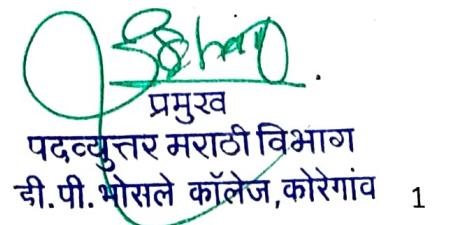 प्रमुख
पदव्युत्तर मराठी विभाग
डी.पी.भोसले कॉलेज,कोरेगांव 1